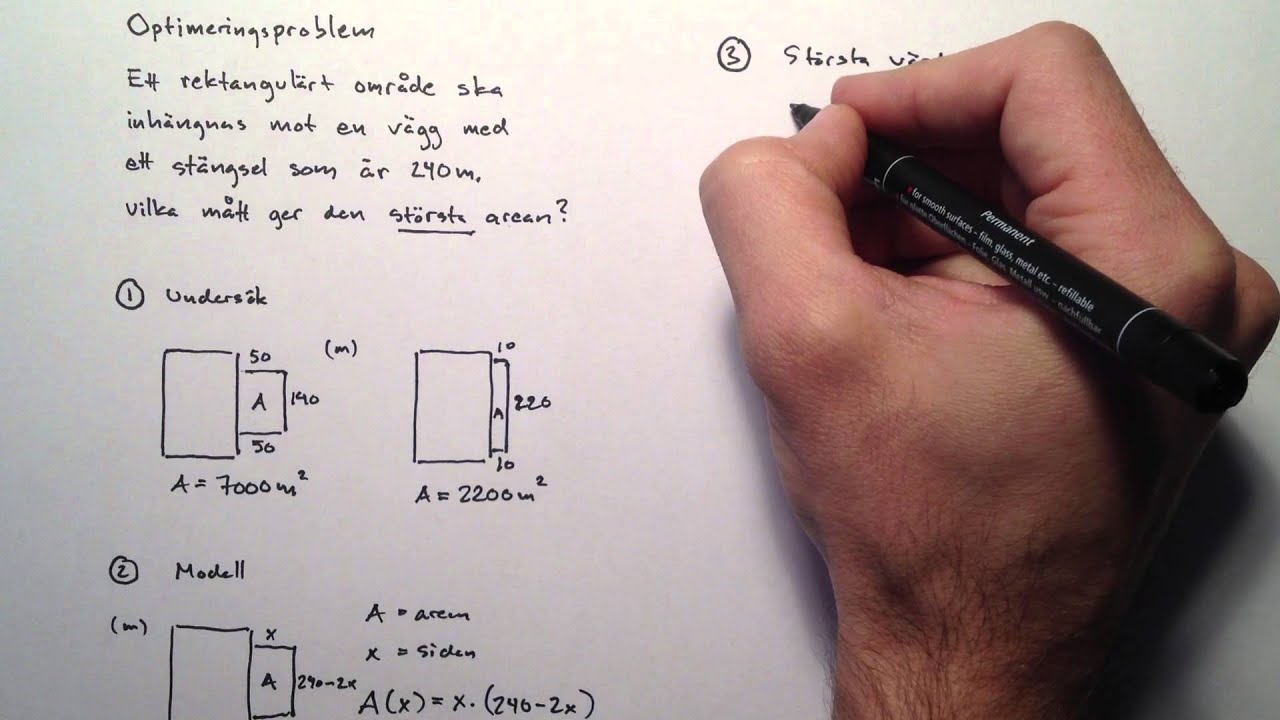 Optimeringsproblem
Ett rektangulärt område ska
inhängnas mot en vägg med
ett stängsel som är 240m.
vilka mått ger den största arean?
① Undersök
50
(m)
A
140
50
A = 7000m²
10
A
220
10
A = 2200m²
② Modell
(m)
x
A
240-2x
A = arean
x = siden
A(x) = x·(240-2x)
③ Största
Permanent
for smooth surfaces - film, glass, metal etc. - refillable
für glatte Oberflächen - Folie, Glas, Metall usw. - nachfüllbar